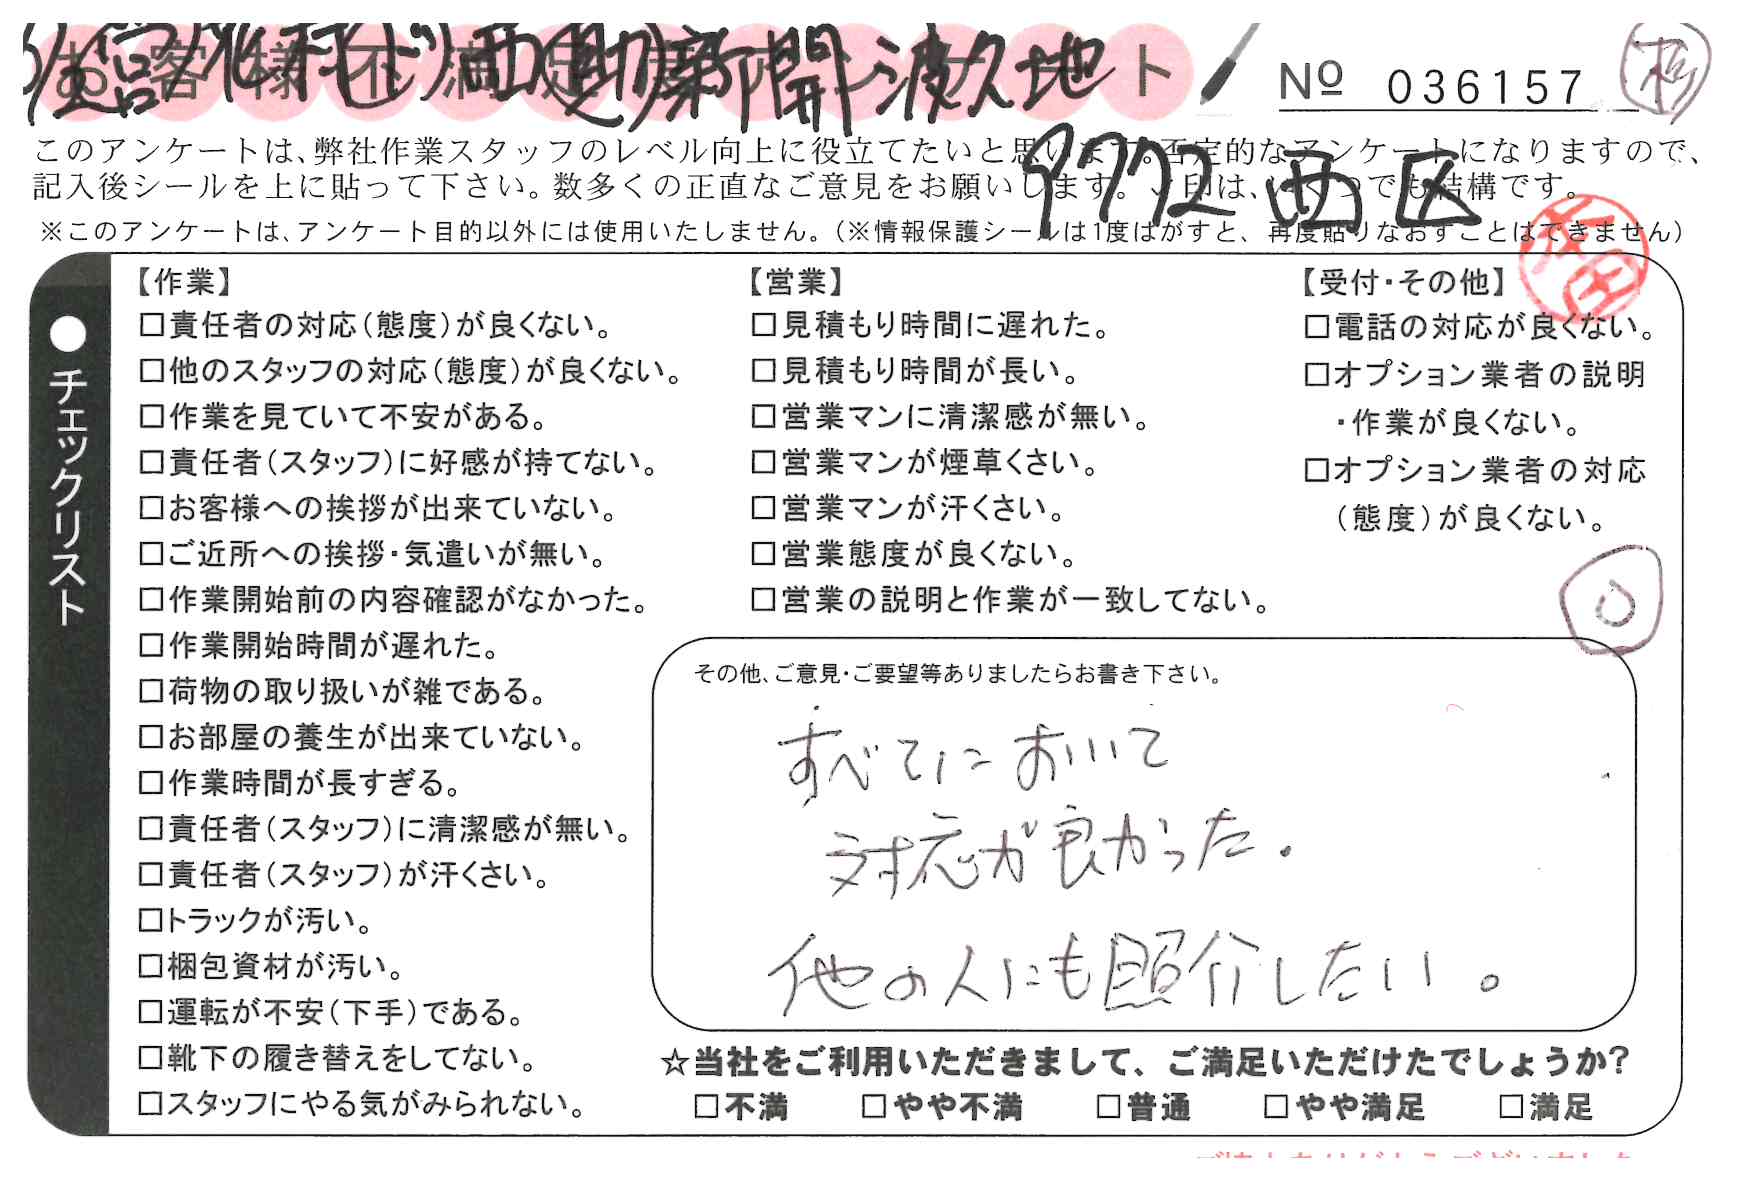 お客様不満足度アンケート
№ 036157
杉
このアンケートは、弊社作業スタッフのレベル向上に役立てたいと思います。否定的なアンケートになりますので、
記入後シールを上に貼って下さい。数多くの正直なご意見をお願いします。✓印は、いくつでも結構です。
9772 西区
※このアンケートは、アンケート目的以外には使用いたしません。（※情報保護シールは1度はがすと、再度貼りなおすことはできません）
●チェックリスト
【作業】
□責任者の対応（態度）が良くない。
□他のスタッフの対応（態度）が良くない。
□作業を見ていて不安がある。
□責任者（スタッフ）に好感が持てない。
□お客様への挨拶が出来ていない。
□ご近所への挨拶・気遣いが無い。
□作業開始前の内容確認がなかった。
□作業開始時間が遅れた。
□荷物の取り扱いが雑である。
□お部屋の養生が出来ていない。
□作業時間が長すぎる。
□責任者（スタッフ）に清潔感が無い。
□責任者（スタッフ）が汗くさい。
□トラックが汚い。
□梱包資材が汚い。
□運転が不安（下手）である。
□靴下の履き替えをしてない。
□スタッフにやる気がみられない。
【営業】
□見積もり時間に遅れた。
□見積もり時間が長い。
□営業マンに清潔感が無い。
□営業マンが煙草くさい。
□営業マンが汗くさい。
□営業態度が良くない。
□営業の説明と作業が一致してない。
【受付・その他】
□電話の対応が良くない。
□オプション業者の説明
・作業が良くない。
□オプション業者の対応
（態度）が良くない。
その他、ご意見・ご要望等ありましたらお書き下さい。
すべてにおいて
対応が良かった.
他の人にも照介したい。
☆当社をご利用いただきまして、ご満足いただけたでしょうか？
□不満 □やや不満 □普通 □やや満足 □満足